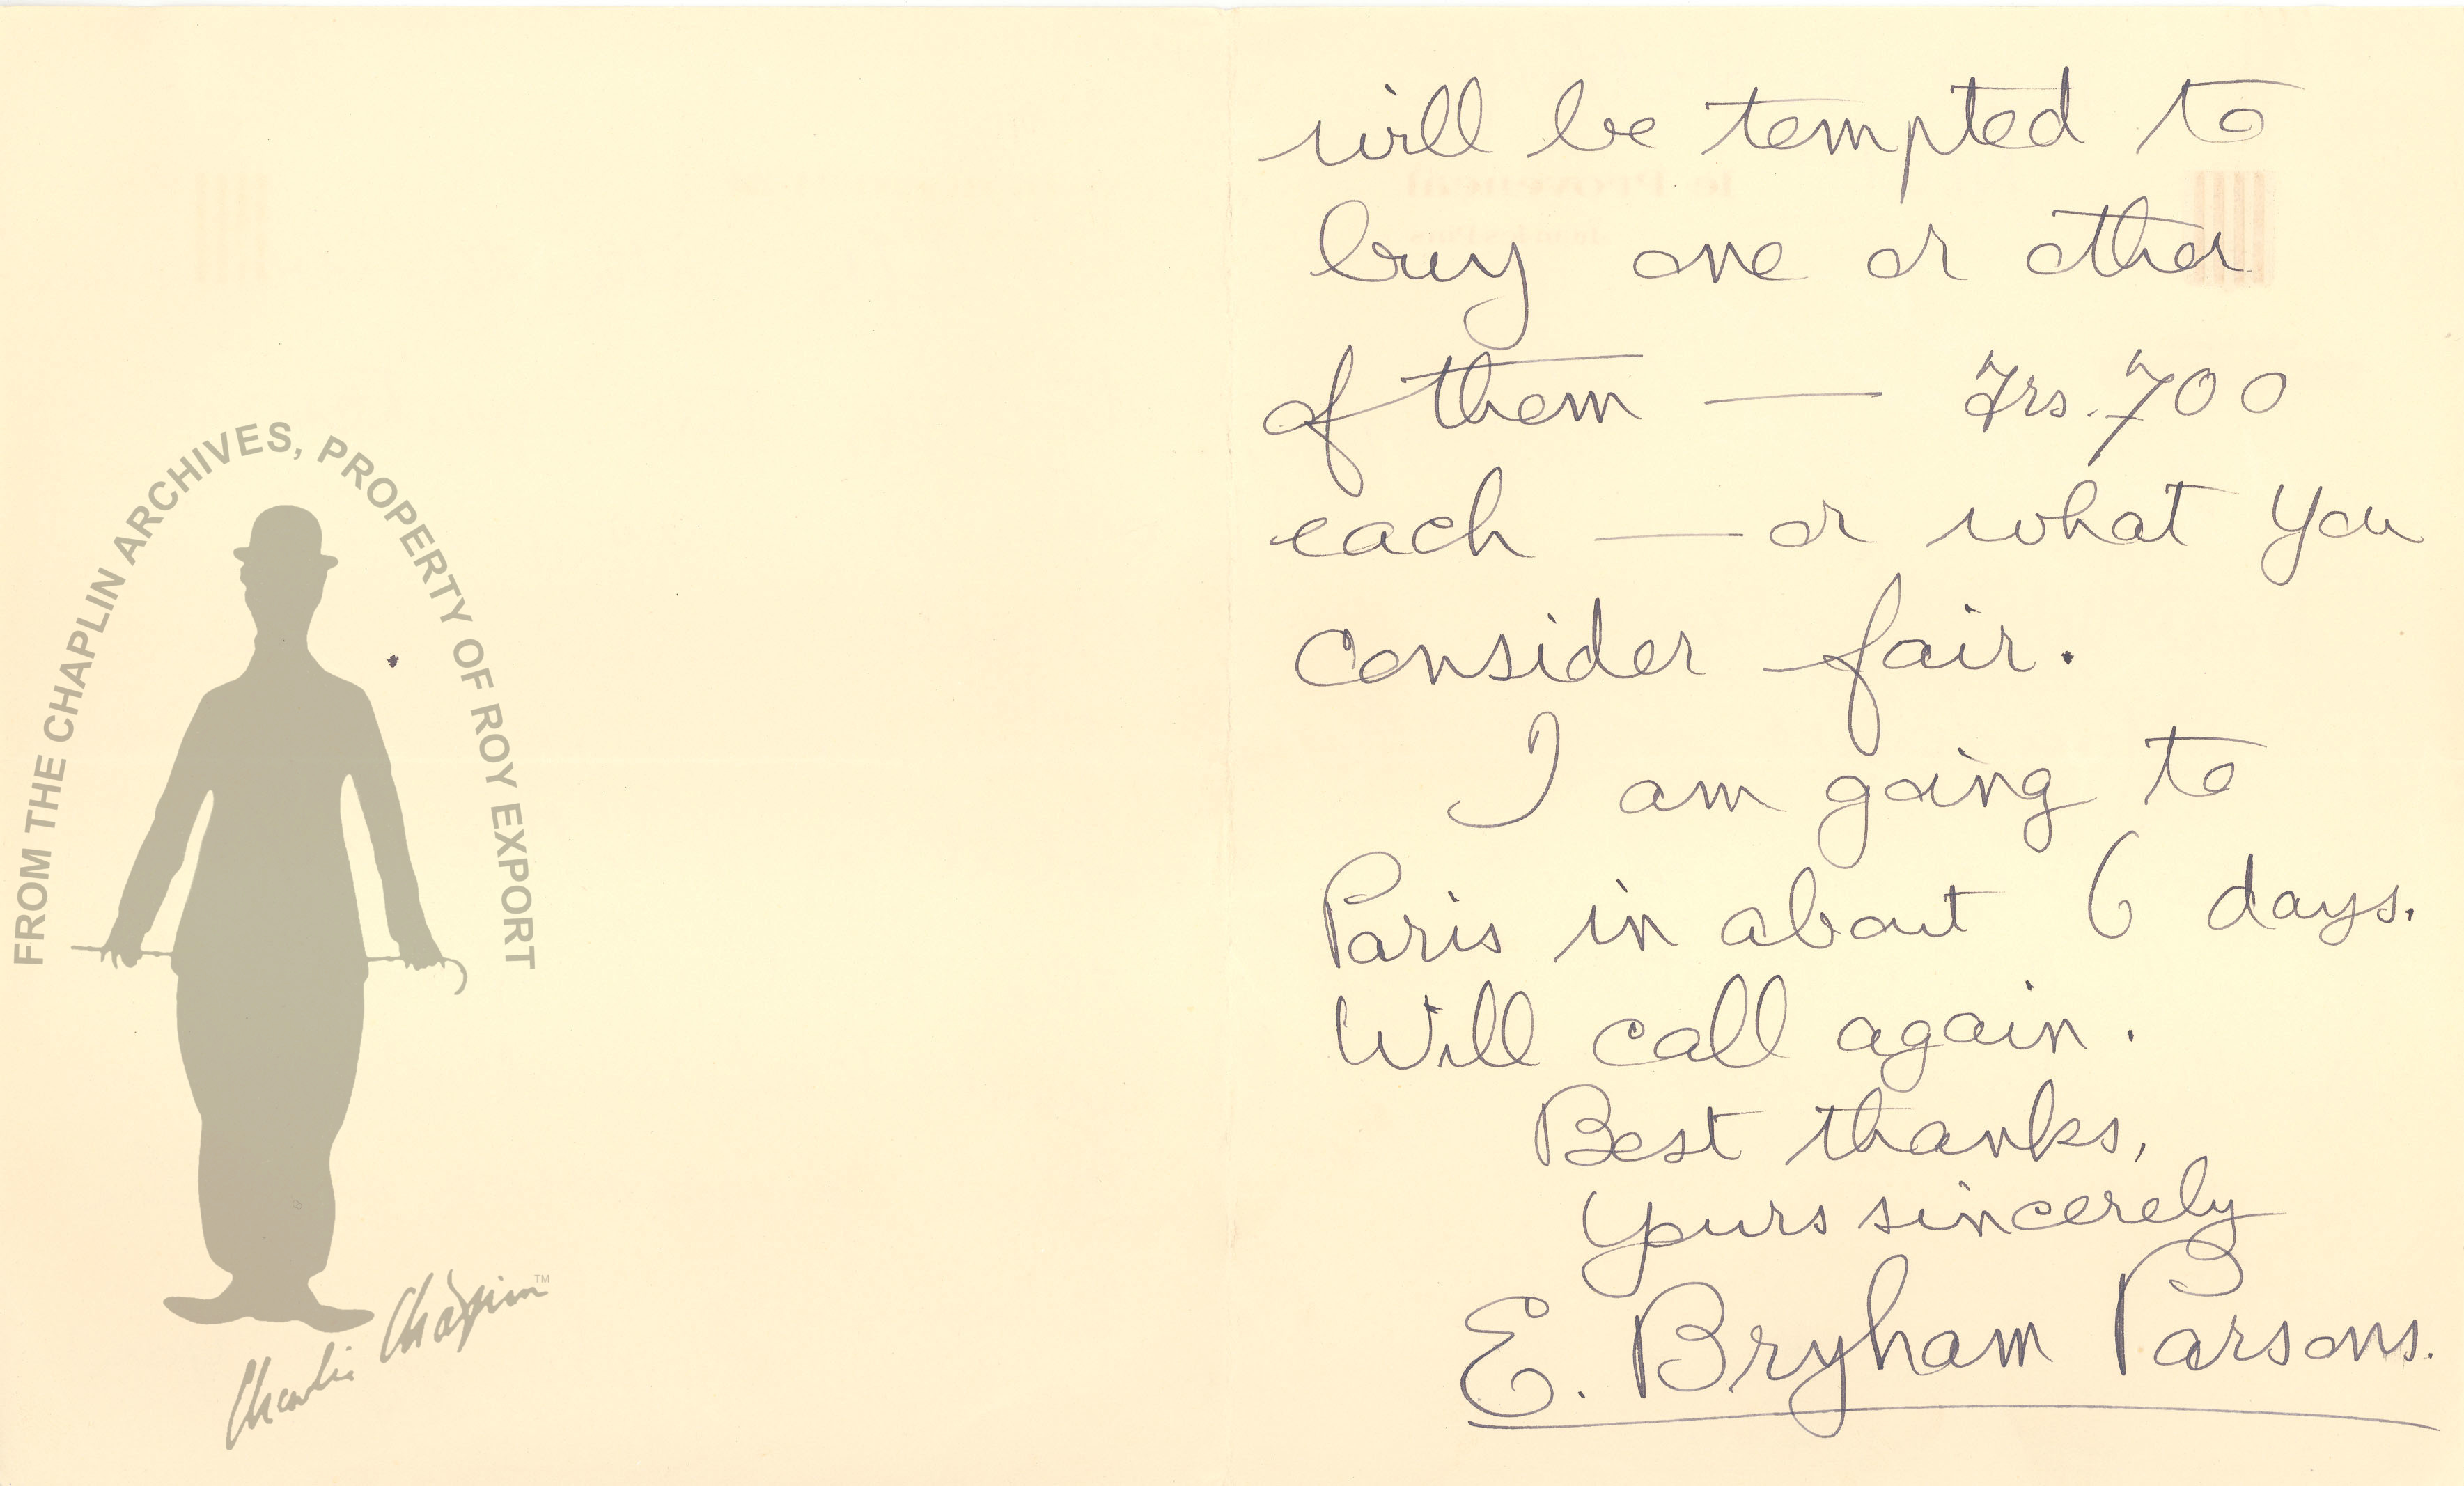 FROM THE CHAPLIN ARCHIVES, PROPERTY OF ROY EXPORT
Charlie Chaplin™
will be tempted to
buy one or other
of them — Frs. 700
each — or what you
consider fair.
I am going to
Paris in about 6 days.
Will call again.
Best thanks,
Yours sincerely
E. Bryham Parsons.